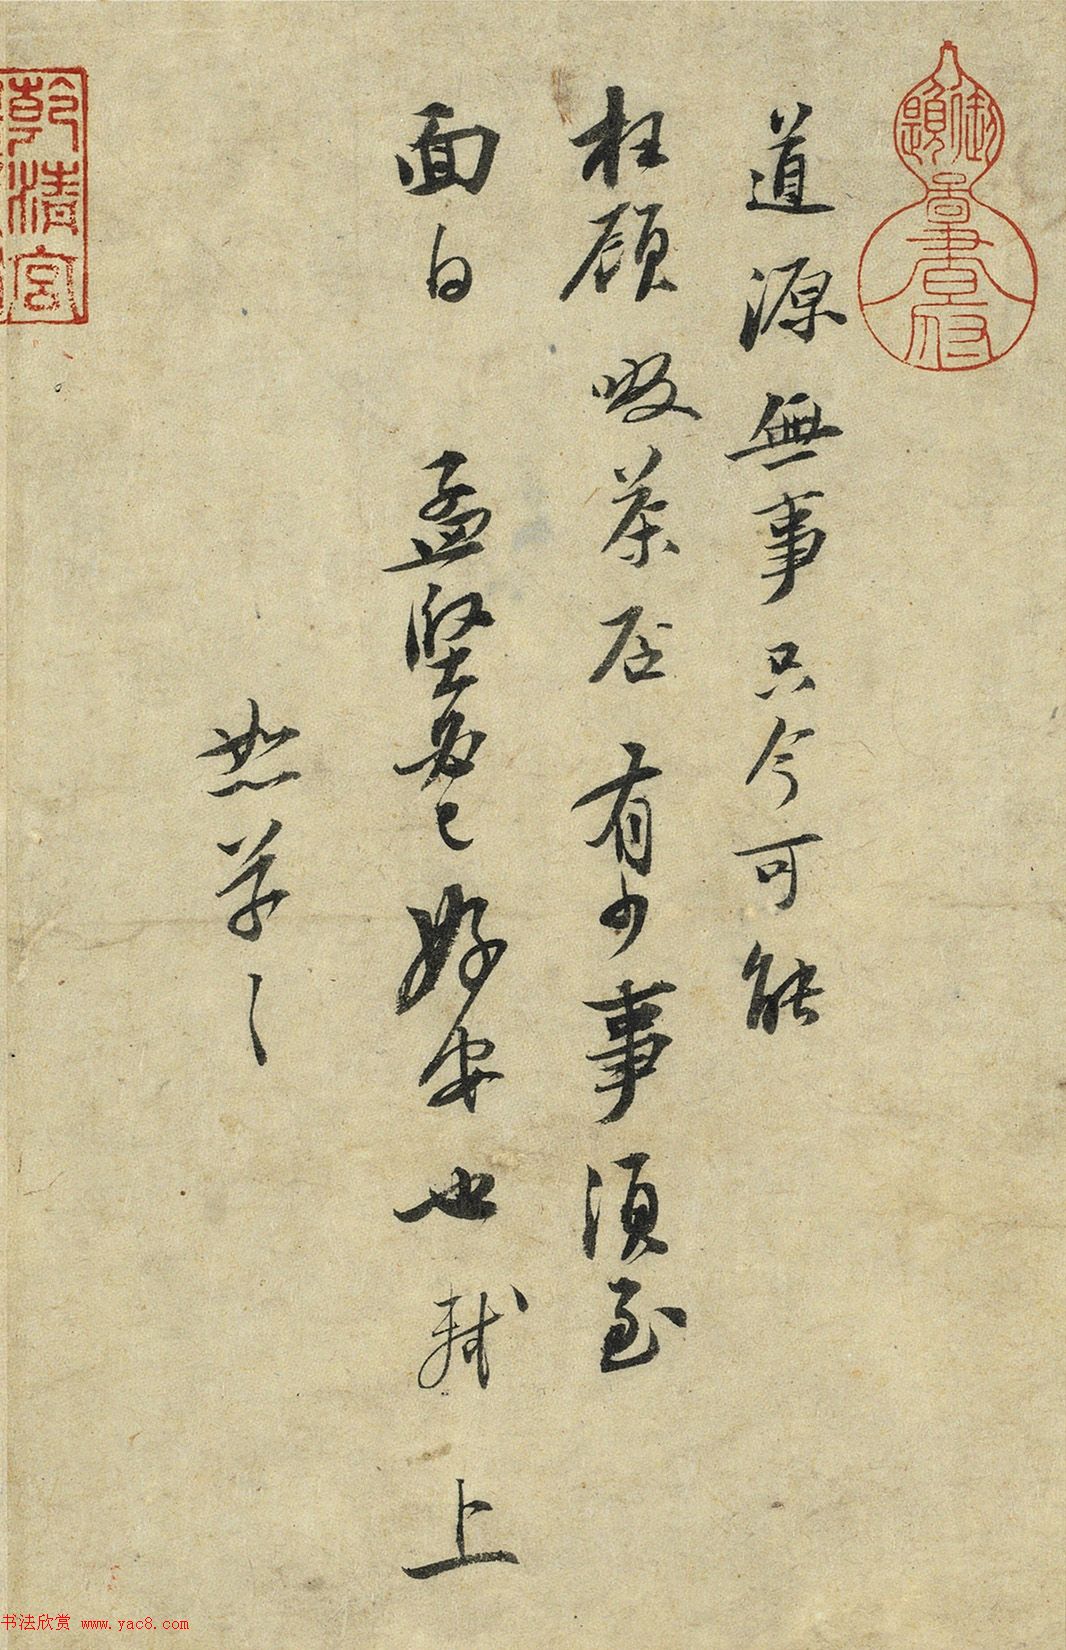 道源無事只今可能
枉顧啜茶否有少事須至
面白孟堅必已好安也軾上
恕草草
乾清宮
御題
圖書府
书法欣赏 www.yac8.com